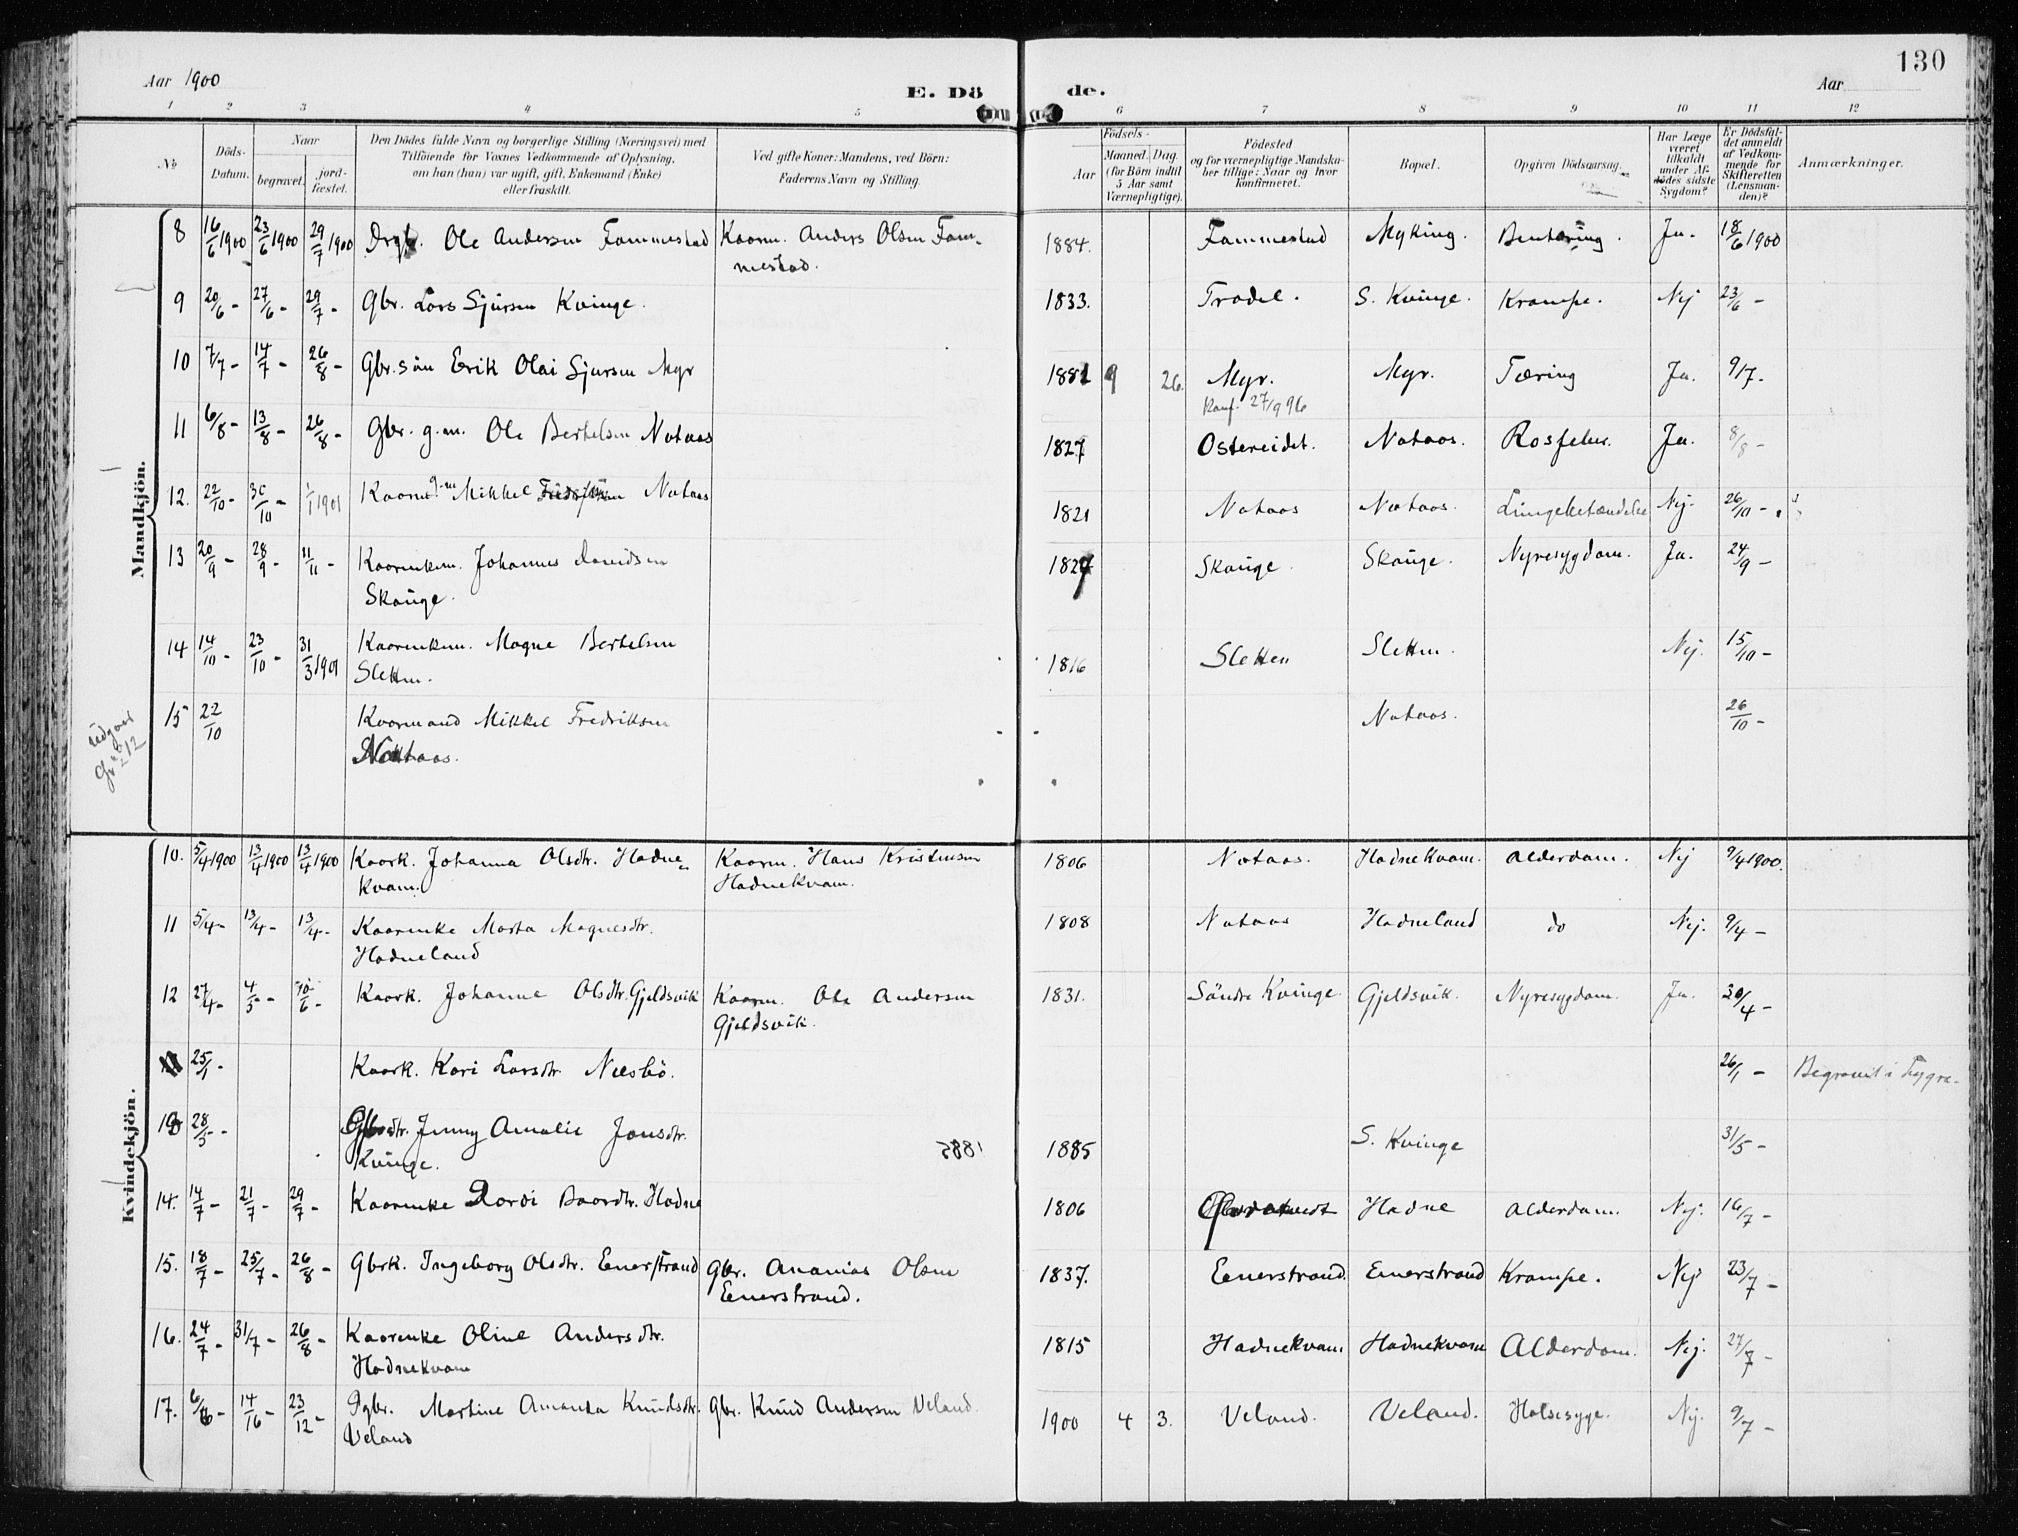 130
Aar 1900 E. Dö de. Aar
1 2 3 4 5 6 7 8 9 10 11 12
No Döds-Datum. Naar begravet. jord-fæstet. Den Dödes fulde Navn og borgerlige Stilling (Næringsvei) med Tilföiende for Voxnes Vedkommende af Oplysning, om han (hun) var ugift, gift, Enkemand (Enke) eller fraskilt. Ved gifte Koner: Mandens, ved Börn: Faderens Navn og Stilling. Födsels- Aar Maaned. Dag. (for Börn indtil 5 Aar samt Værnepligtige). Födested og for værnepligtige Mandskaber tillige: Naar og hvor konfirmeret. Bopæl. Opgiven Dödsaarsag. Har Læge været tilkaldt under Afdödes sidste Sygdom? Er Dödsfaldet anmeldt af Vedkommende for Skifteretten (Lensmanden)? Anmærkninger.
Mandkjön.
8 16/6 1900 23/6 1900 29/7 1900 Ole Andersen Fammestad Kaarm. Anders Olsen Fam- 1884. Fammestad Myking. Bentæring. Ja. 18/6 1900
mestad.
9 20/6 - 27/6 - 29/7 - Gbr. Lars Sjursen Kvinge. 1833. Tradel. S. Kvinge. Krampe. Nej 23/6 -
10 7/7 - 14/7 - 26/8 - Gbr. sön Erik Olai Sjursen Myr 1881 9 26. Myr. Myr. Tæring Ja. 9/7.
Konf. 27/9 96
11 6/8 - 13/8 - 26/8 - Gbr. g.m. Ole Bertelsen Nataas 1827 Ostereidet. Nataas. Ja. 8/8 -
12. 22/10 - 30/10 - 1/1 1901 Kaarm g.m Mikkel Nataas 1821 Nataas Nataas. Lungebetændelse Nej. 26/10 -
13 20/9 - 28/9 - 11/11 - Kaarenkem. Johannes Davidsen 1827 Skauge. Skauge. Nyresygdom. Ja. 24/9 -
Skauge.
14 14/10 - 23/10 - 31/3 1901 Kaarenkem. Magne Bertelsen 1816 Sletten Sletten. Nej. 15/10 -
Sletten.
Udgaar
Gr. 12
15 22/10 Kaarmand Mikkel Fredriksen Nataas. 26/10 -
Nataas.
Kvindekjön.
10. 5/4 1900 13/4 1900 13/4 1900 Kaark. Johanna Olsdtr. Hadne- Kaarm. Hans Kristensen 1806 Nataas. Hadnekvam. Alderdom. Nej 9/4 1900.
kvam. Hadnekvam.
11 5/4 - 13/4 - 13/4 - Kaarenke Marta Magnesdtr. 1808 Nataas Hadneland do Nej. 9/4 -
Hadneland
12 27/4 - 4/5 - 10/6 - Kaark. Johanne Olsdtr. Gjeldsvik Kaarm. Ole Andersen 1831. Söndre Kvinge. Gjeldsvik. Nyresygdom. Ja. 30/4 -
Gjeldsvik.
25/1 - Kaark. Kari Larsdtr. Næsbö. 26/1 - Begravet i
13 28/5 - Gbrdtr. Jenny Amalie Jonsdtr. 1885 S. Kvinge 31/5 -
Kvinge.
14. 14/7 - 21/7 - 29/7 - Kaarenke Dordi Baardtr. Hadne 1806 Hadne Alderdom. Nej. 16/7 -
15. 18/7 - 25/7 - 26/8 - Gbrk. Ingeborg Olsdtr. Eenerstrand Gbr. Ananias Olsen 1837. Eenerstrand. Eenerstrand Krampe. Nej 23/7 -
Eenerstrand.
16. 24/7 - 31/7 - 26/8 - Kaarenke Oline Andersdtr. 1815 Hadnekvam Hadnekvam Alderdom. Nej. 27/7 -
Hadnekvam
17. 14/16 - 23/12 - Martine Amanda Knudsdtr. Gbr. Knud Andersen Veland. 1900 4 3. Veland. Veland. Halssyge. Nej. 9/7 -
Veland